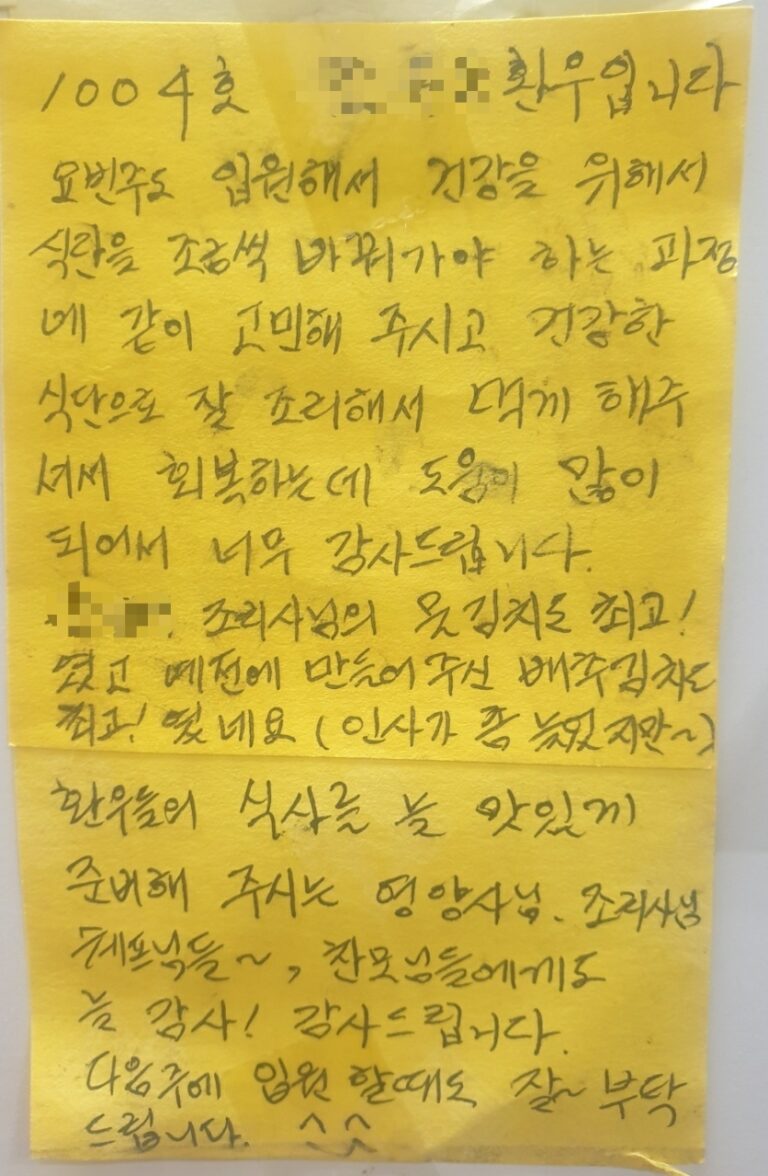 1004호 환우입니다
요번주도 입원해서 건강을 위해서
식단을 조금씩 바꿔가야 하는 과정
에 같이 고민해 주시고 건강한
식단으로 잘 조리해서 먹게 해주
셔서 회복하는데 도움이 많이
되어서 너무 감사드립니다.
조리사님의 뭇김치도 최고!
였고 예전에 만들어주신 배추김치도
최고! 였네요 (인사가 좀 늦었지만~)
환우들의 식사를 늘 맛있게
준비해 주시는 영양사님. 조리사님
쉐프님들~, 찬모님들에게도
늘 감사! 감사드립니다.
다음주에 입원 할때도 잘~ 부탁
드립니다. ^^